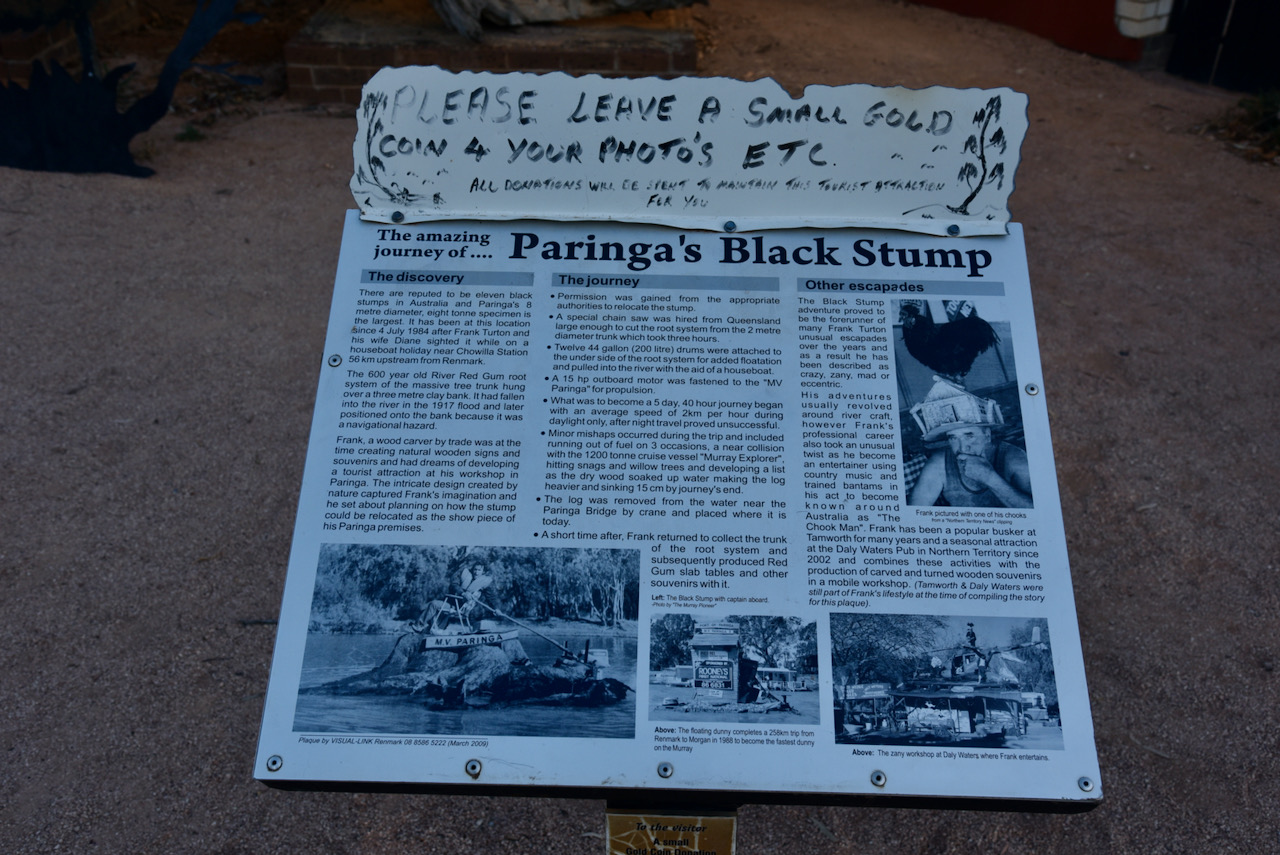 PLEASE LEAVE A SMALL GOLD
COIN 4 YOUR PHOTO'S ETC.
ALL DONATIONS WILL BE SPENT TO MAINTAIN THIS TOURIST ATTRACTION
FOR YOU
The amazing
journey of ....
Paringa's Black Stump
The discovery
There are reputed to be eleven black
stumps in Australia and Paringa's 8
metre diameter, eight tonne specimen is
the largest. It has been at this location
since 4 July 1984 after Frank Turton and
his wife Diane sighted it while on a
houseboat holiday near Chowilla Station
56 km upstream from Renmark.
The 600 year old River Red Gum root
system of the massive tree trunk hung
over a three metre clay bank. It had fallen
into the river in the 1917 flood and later
positioned onto the bank because it was
a navigational hazard.
Frank, a wood carver by trade was at the
time creating natural wooden signs and
souvenirs and had dreams of developing
a tourist attraction at his workshop in
Paringa. The intricate design created by
nature captured Frank's imagination and
he set about planning on how the stump
could be relocated as the show piece of
his Paringa premises.
The journey
• Permission was gained from the appropriate
authorities to relocate the stump.
• A special chain saw was hired from Queensland
large enough to cut the root system from the 2 metre
diameter trunk which took three hours.
• Twelve 44 gallon (200 litre) drums were attached to
the under side of the root system for added floatation
and pulled into the river with the aid of a houseboat.
• A 15 hp outboard motor was fastened to the "MV
Paringa" for propulsion.
• What was to become a 5 day, 40 hour journey began
with an average speed of 2km per hour during
daylight only, after night travel proved unsuccessful.
• Minor mishaps occurred during the trip and included
running out of fuel on 3 occasions, a near collision
with the 1200 tonne cruise vessel "Murray Explorer",
hitting snags and willow trees and developing a list
as the dry wood soaked up water making the log
heavier and sinking 15 cm by journey's end.
• The log was removed from the water near the
Paringa Bridge by crane and placed where it is
today.
• A short time after, Frank returned to collect the trunk
of the root system and
subsequently produced Red
Gum slab tables and other
souvenirs with it.
Left: The Black Stump with captain aboard.
-Photo by "The Murray Pioneer"
Other escapades
The Black Stump
adventure proved to
be the forerunner of
many Frank Turton
unusual escapades
over the years and
as a result he has
been described as
crazy, zany, mad or
eccentric.
His adventures
usually revolved
around river craft,
however Frank's
professional career
also took an unusual
twist as he become
an entertainer using
country music and
trained bantams in
his act to become
known around
Australia as "The
Chook Man". Frank has been a popular busker at
Tamworth for many years and a seasonal attraction
at the Daly Waters Pub in Northern Territory since
2002 and combines these activities with the
production of carved and turned wooden souvenirs
in a mobile workshop. (Tamworth & Daly Waters were
still part of Frank's lifestyle at the time of compiling the story
for this plaque).
Frank pictured with one of his chooks
from a "Northern Territory News" clipping
M.V. PARINGA
ROONEY'S
Plaque by VISUAL-LINK Renmark 08 8586 5222 (March 2009)
Above: The floating dunny completes a 258km trip from
Renmark to Morgan in 1988 to become the fastest dunny
on the Murray
Above: The zany workshop at Daly Waters where Frank entertains.
To the visitor
A small
Gold Coin Donation